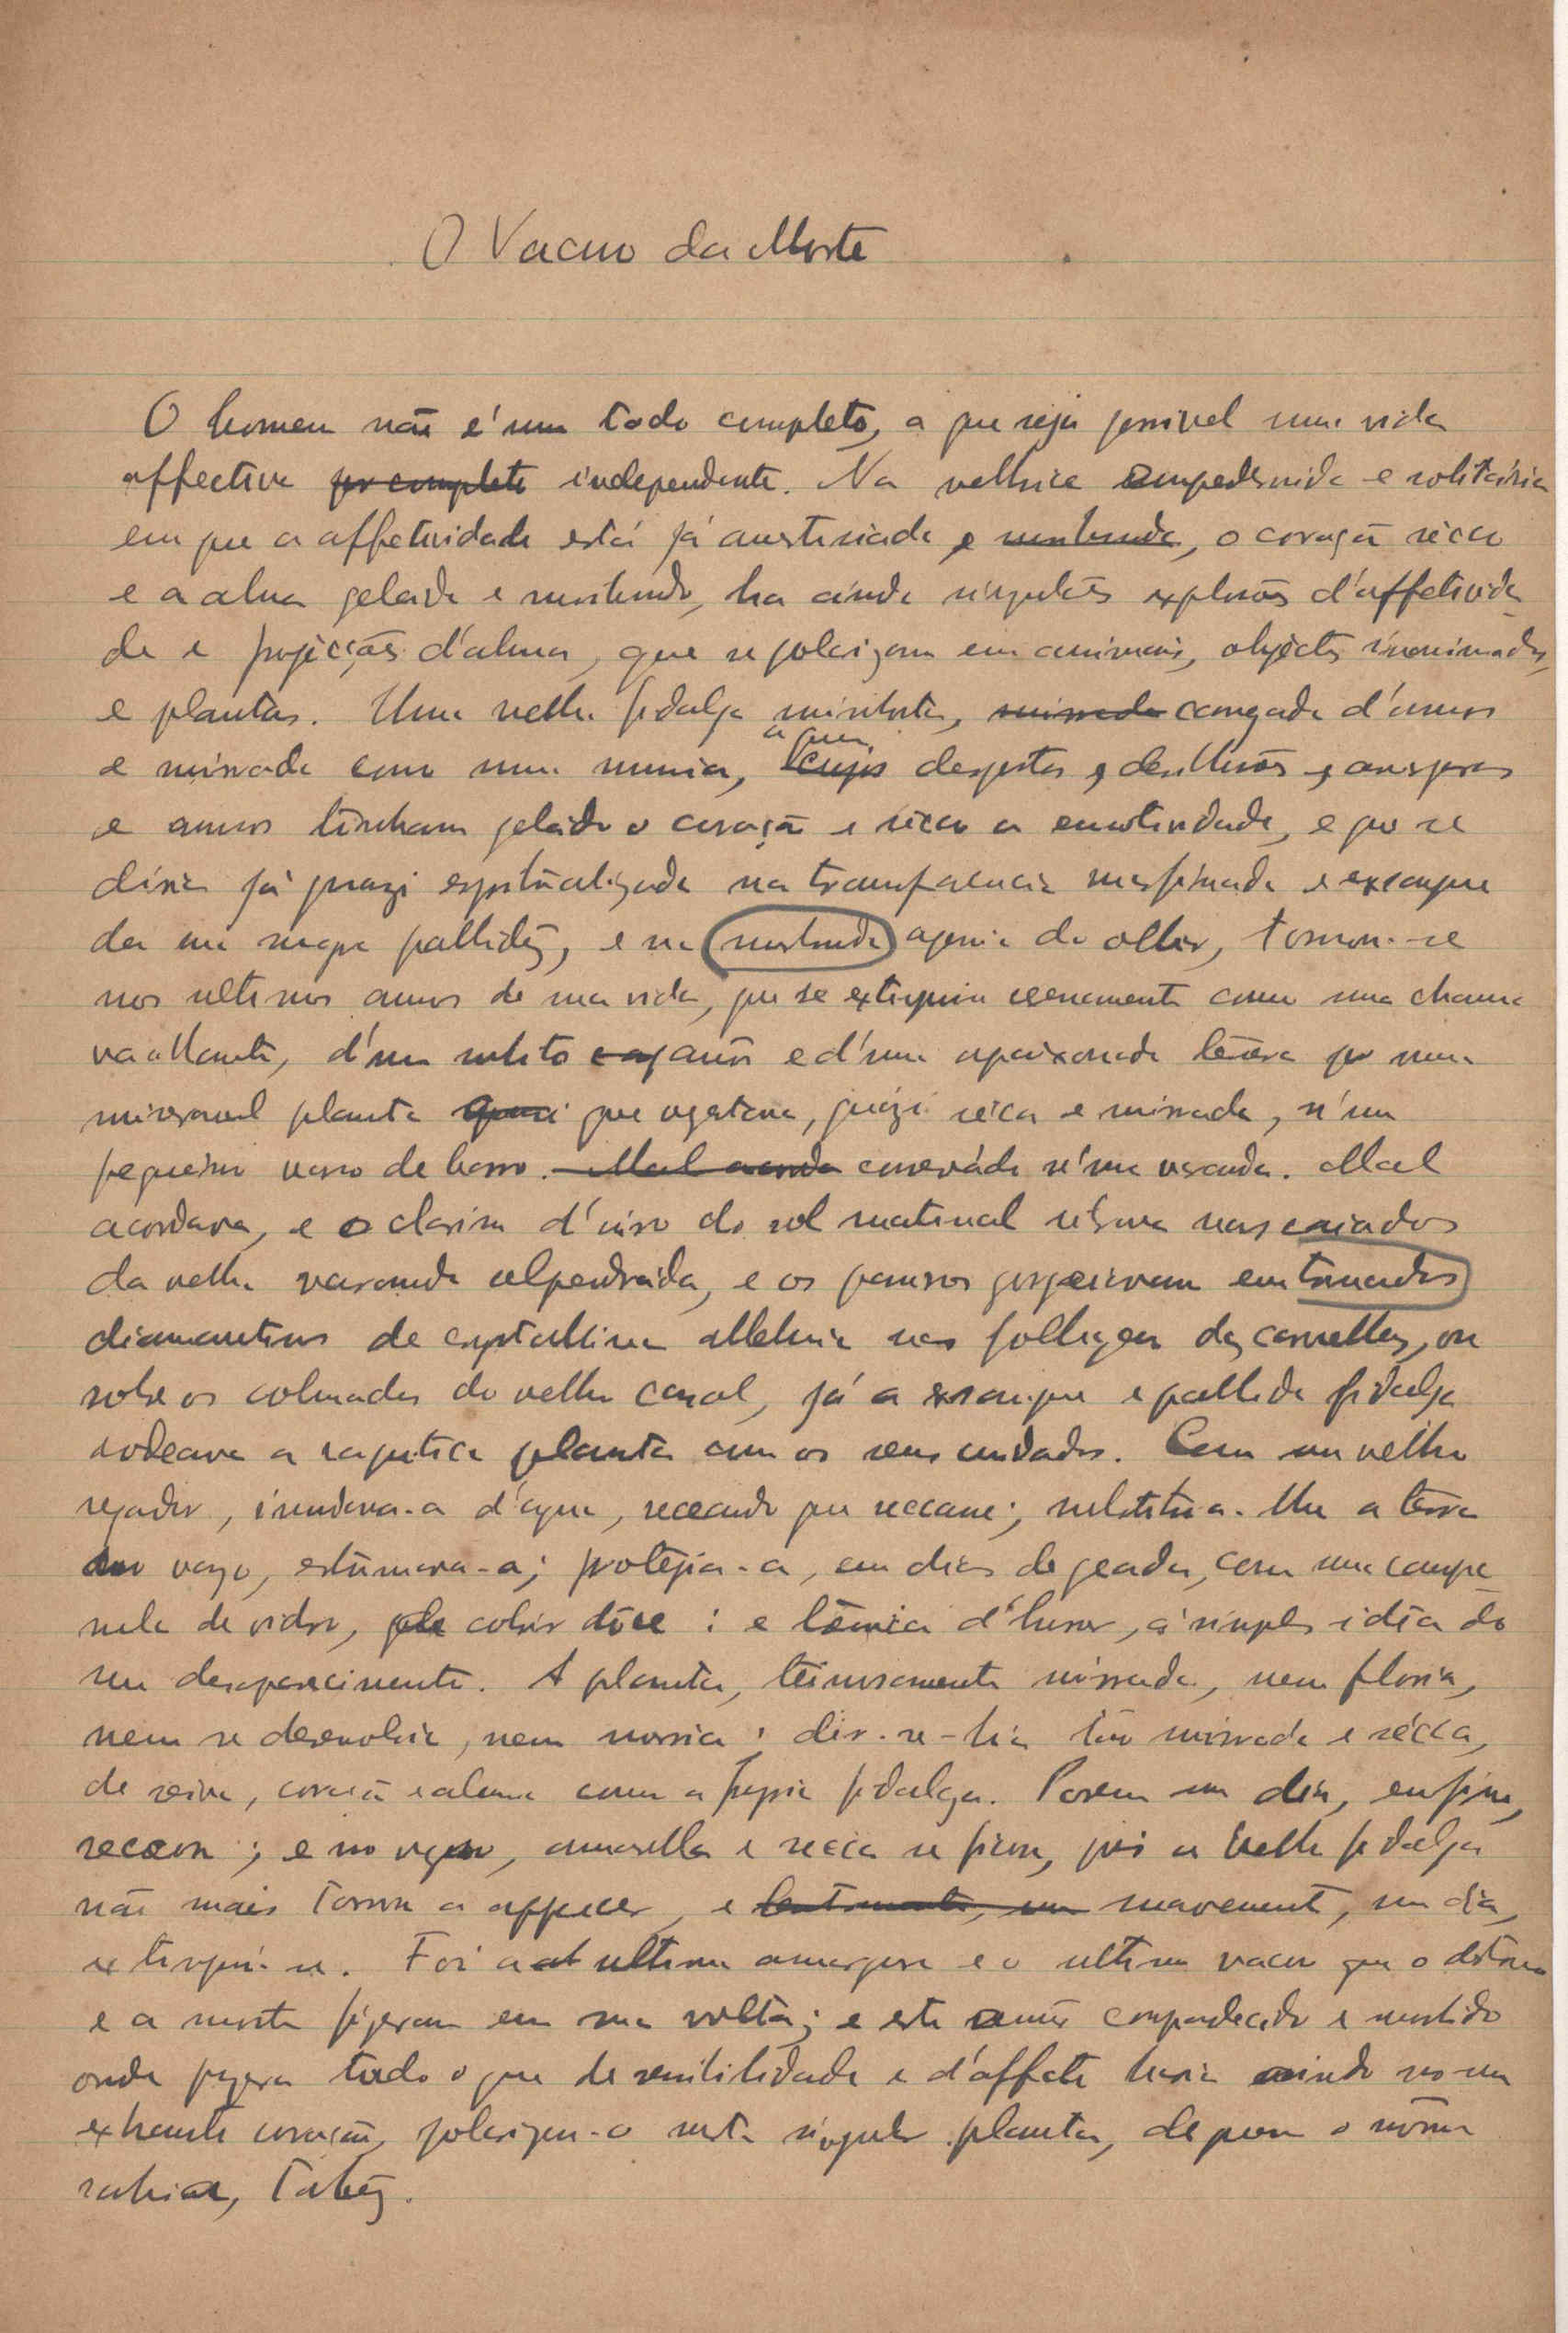 O Vacuo da Morte
O homem não é um todo completo, a que seja possivel uma vida
affectiva por completo independente. Na velhice empedernida e solitária
em que a affetividade está já anesteziada, e moribunda, o coração sêcco
e a alma gelada e moribunda, ha ainda singulares explosões d'affetivida
de e projécções d'alma, que se polarizam em animaes, objéctos inanimados,
e plantas. Uma velha fidalga minhota, mirrada carregada d'annos
e mirrada como uma mumia, a quem cujos desgostos, desillusões, amarguras
e annos tinham gelado o coração e sêcco a emotividade, e que se
diria já quazi espiritualizada na transparencia marfinada e exsangue
da sua magra pallidez, e na moribunda agonia do olhar, tomou-se
nos ultimos annos de sua vida, que se extinguiu serenamente como uma chama
vacillante, d'um subito carinho e d'uma apaixonada ternura por uma
miseravel planta quazi que vegetava, quazi sêcca e mirrada, n'um
pequeino vaso de barro. Mal acorda conservado n'uma varanda. Mal
acordava, e o clarim d'oiro do sol matinal vibrava nas caiados
da velha varanda alpendrada, e os passaros gorgeiavam em trinados
diamantinos de crystallina alleluia nas folhagens das camellias, ou
sobre os colmados do velho casal, já a exsangue e pallida fidalga
rodeava a raquitica planta com os seus cuidados. Com um velho
regador, inundava-a d'agua, receando que seccasse; substituia-lhe a terra
do vazo, estrumava-a; protegia-a, em dias de geada, com uma campa
nula de vidro, pela cobrir dôce : e tremia d'horror, á simples idéa do
seu desaparecimento. A planta, teimosamente mirrada, nem floria,
nem se desenvolvia, nem morria; dir-se-hia tão mirrada e sécca,
de seiva, coração e alma como a propria fidalga. Porem um dia, emfim,
seccou; e no vazo, amarella e secca se ficou, pois a velha fidalga
não mais tornou a apparecer, e lentamente, um suavemente, um dia,
extinguiu-se. Foi a ultima amargura e o ultimo vacuo que o destino
e a morte fizeram em sua volta; e este amôr compadecido e
onde puzera tudo o que de sensibilidade e d'affecto havia ainda no seu
exhausto coração, polarizou-o nesta singular planta, de quem o nome
sabia, Talvez.